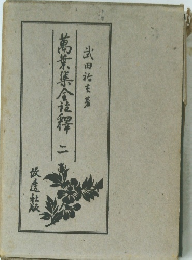 武田祐吉著
萬葉集全註釋 二
改造社版